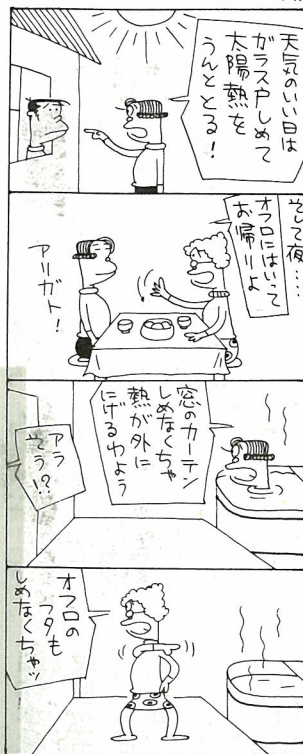 天気のいい日は
ガラス戸しめて
太陽熱を
うんととる！
そして夜‥‥
オフロにはいって
お帰りよ
アリガト！
窓のカーテン
しめなくちゃ
熱が外に
にげるわよう
アラ
そう!?
オフロの
フタも
しめなくちゃッ